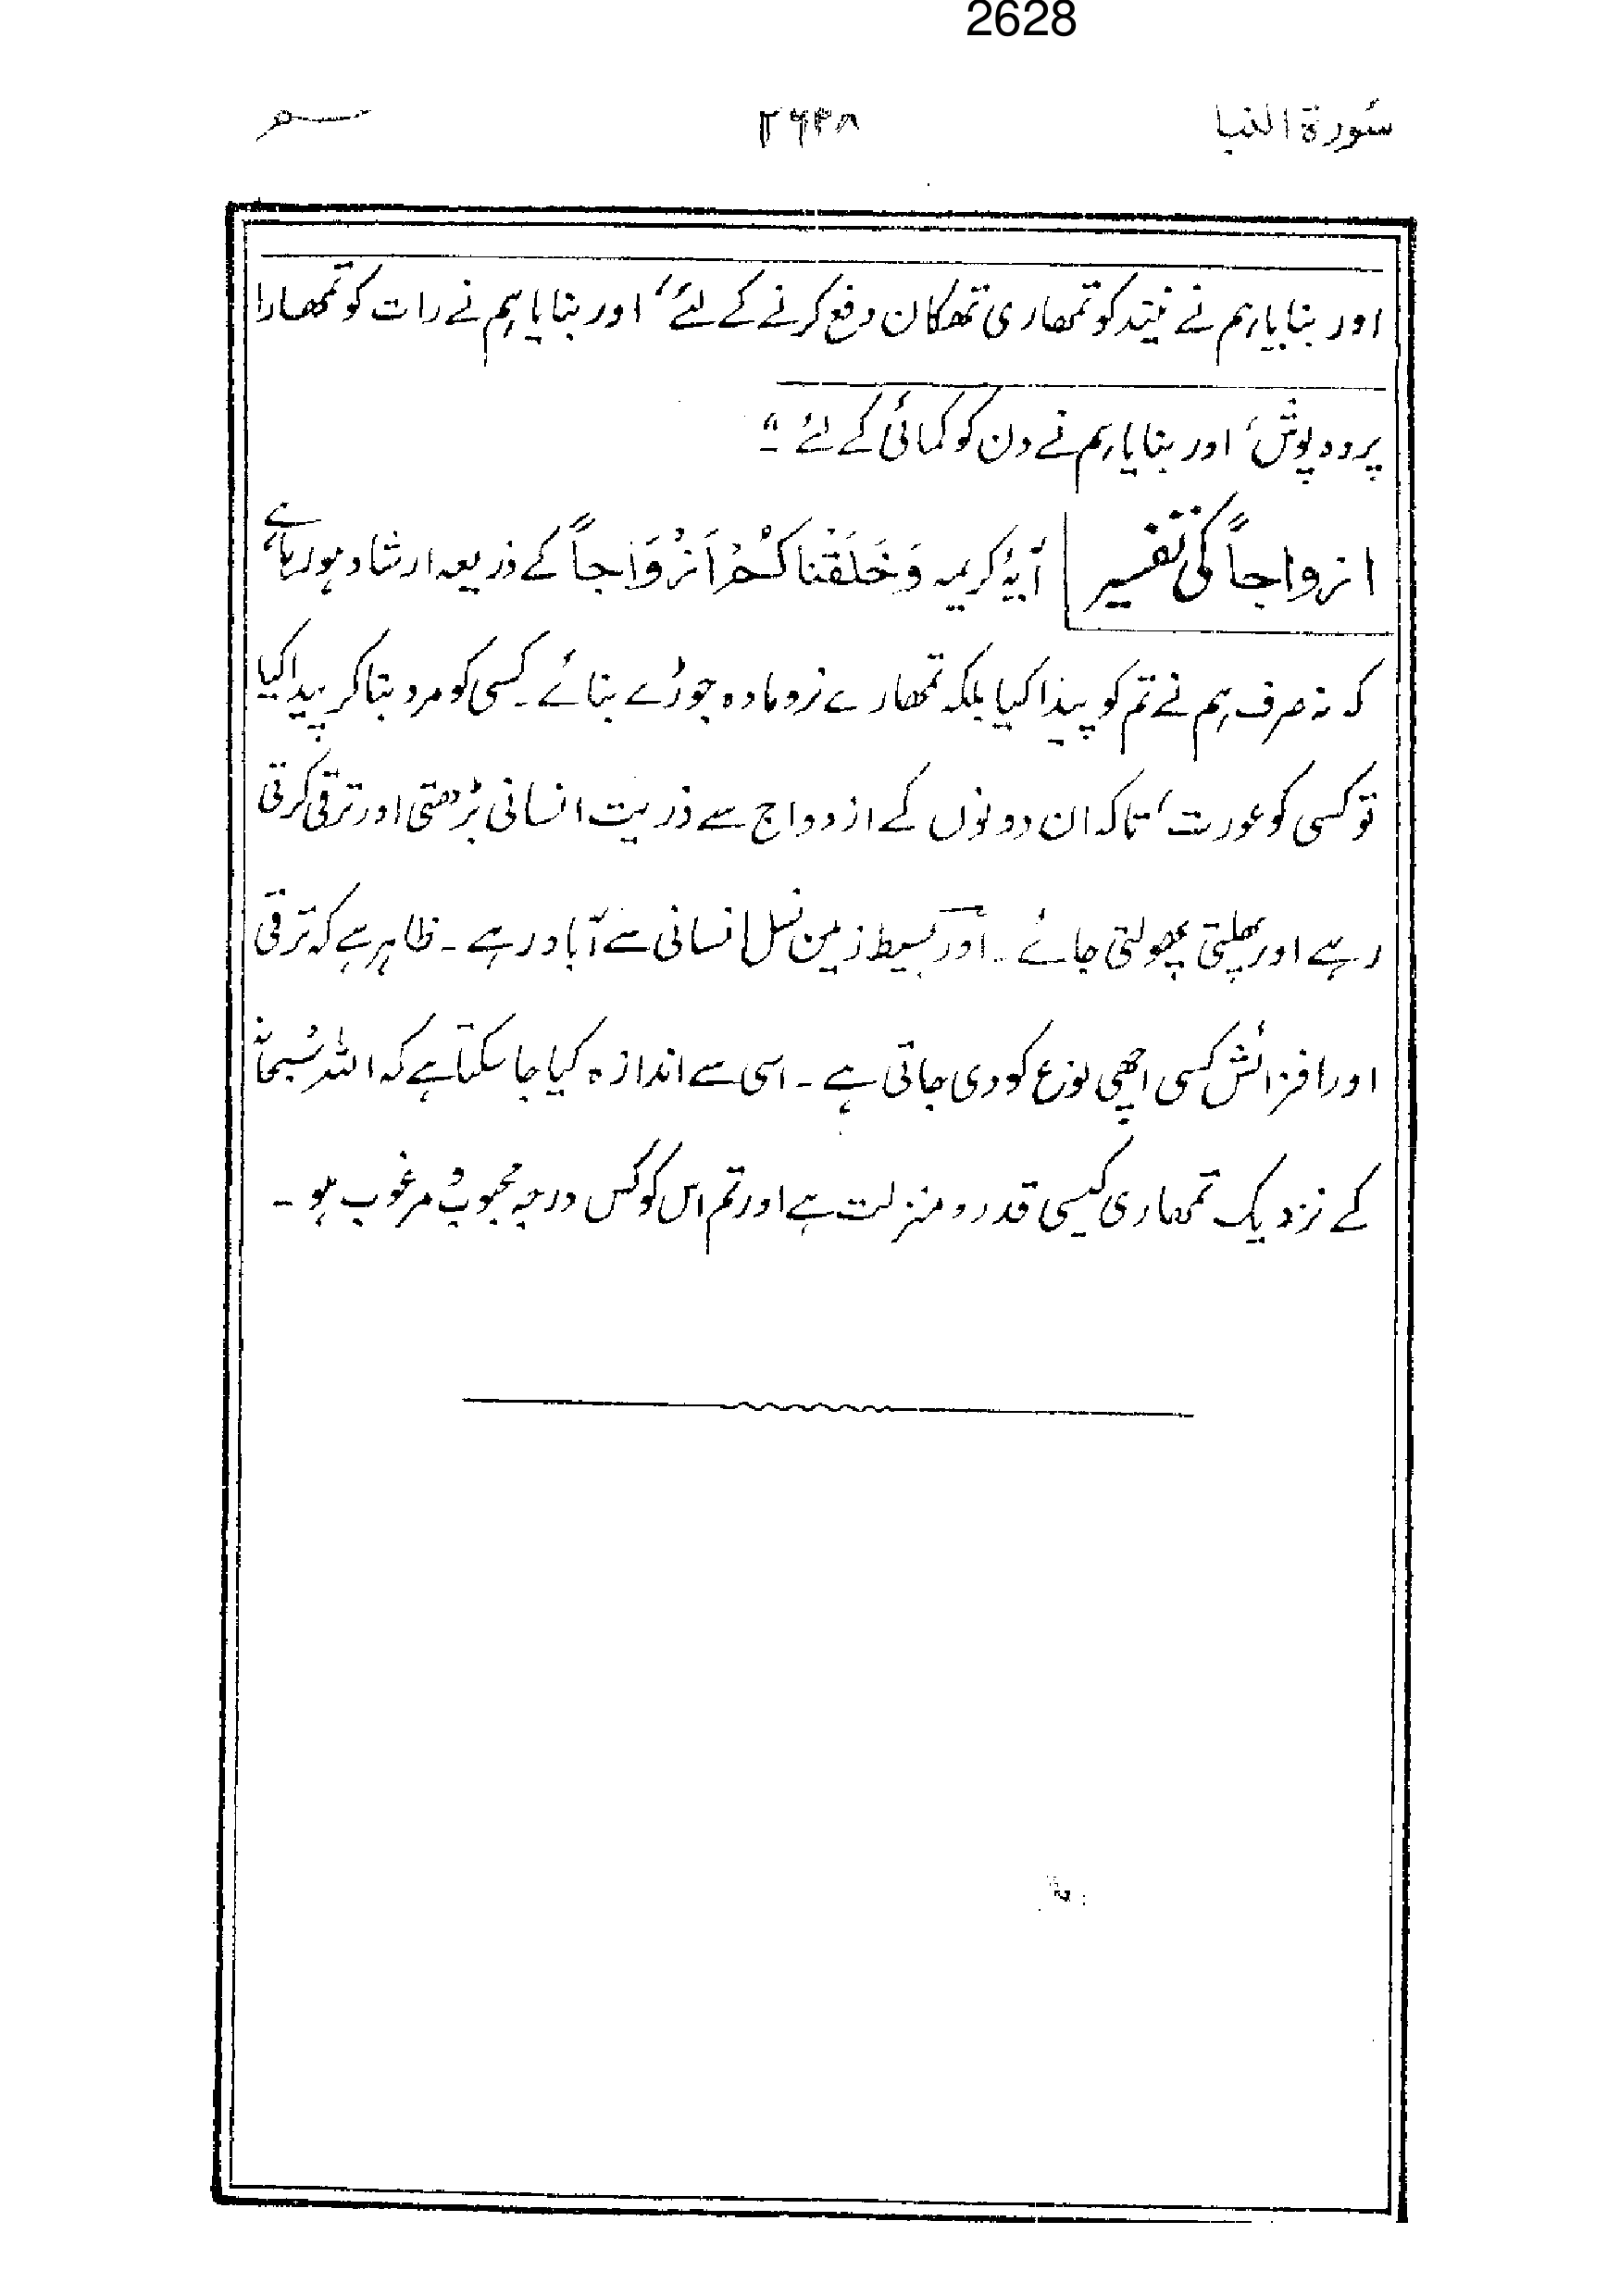 2628
سُورۃ النبا ۲۶۲۸ عـــم
اور بنایا ہم نے نیند کو تمھاری تھکان دفع کرنے کے لئے، اور بنایا ہم نے رات کو تمھارا
پردہ پوش، اور بنایا ہم نے دن کو کمائی کے لئے ۔"
ازواجاً کی تفسیر آیۂ کریمہ وَخَلَقْنَاکُمْ اَزْوَاجاً کے ذریعہ ارشاد ہو رہا ہے،
کہ نہ صرف ہم نے تم کو پیدا کیا بلکہ تمھارے نر و مادہ جوڑے بنائے۔ کسی کو مرد بنا کر پیدا کیا
تو کسی کو عورت، تاکہ ان دونوں کے ازدواج سے ذریت انسانی بڑھتی اور ترقی کرتی
رہے اور پھلتی پھولتی جائے ۔ اور بسیط زمین نسل انسانی سے آباد رہے ۔ ظاہر ہے کہ ترقی
اور افزائش کسی اچھی نوع کو دی جاتی ہے ۔ اسی سے اندازہ کیا جا سکتا ہے کہ اللہ سُبحانہٗ
کے نزدیک تمھاری کیسی قدر و منزلت ہے اور تم اس کو کس درجہ محبوب و مرغوب ہو ۔